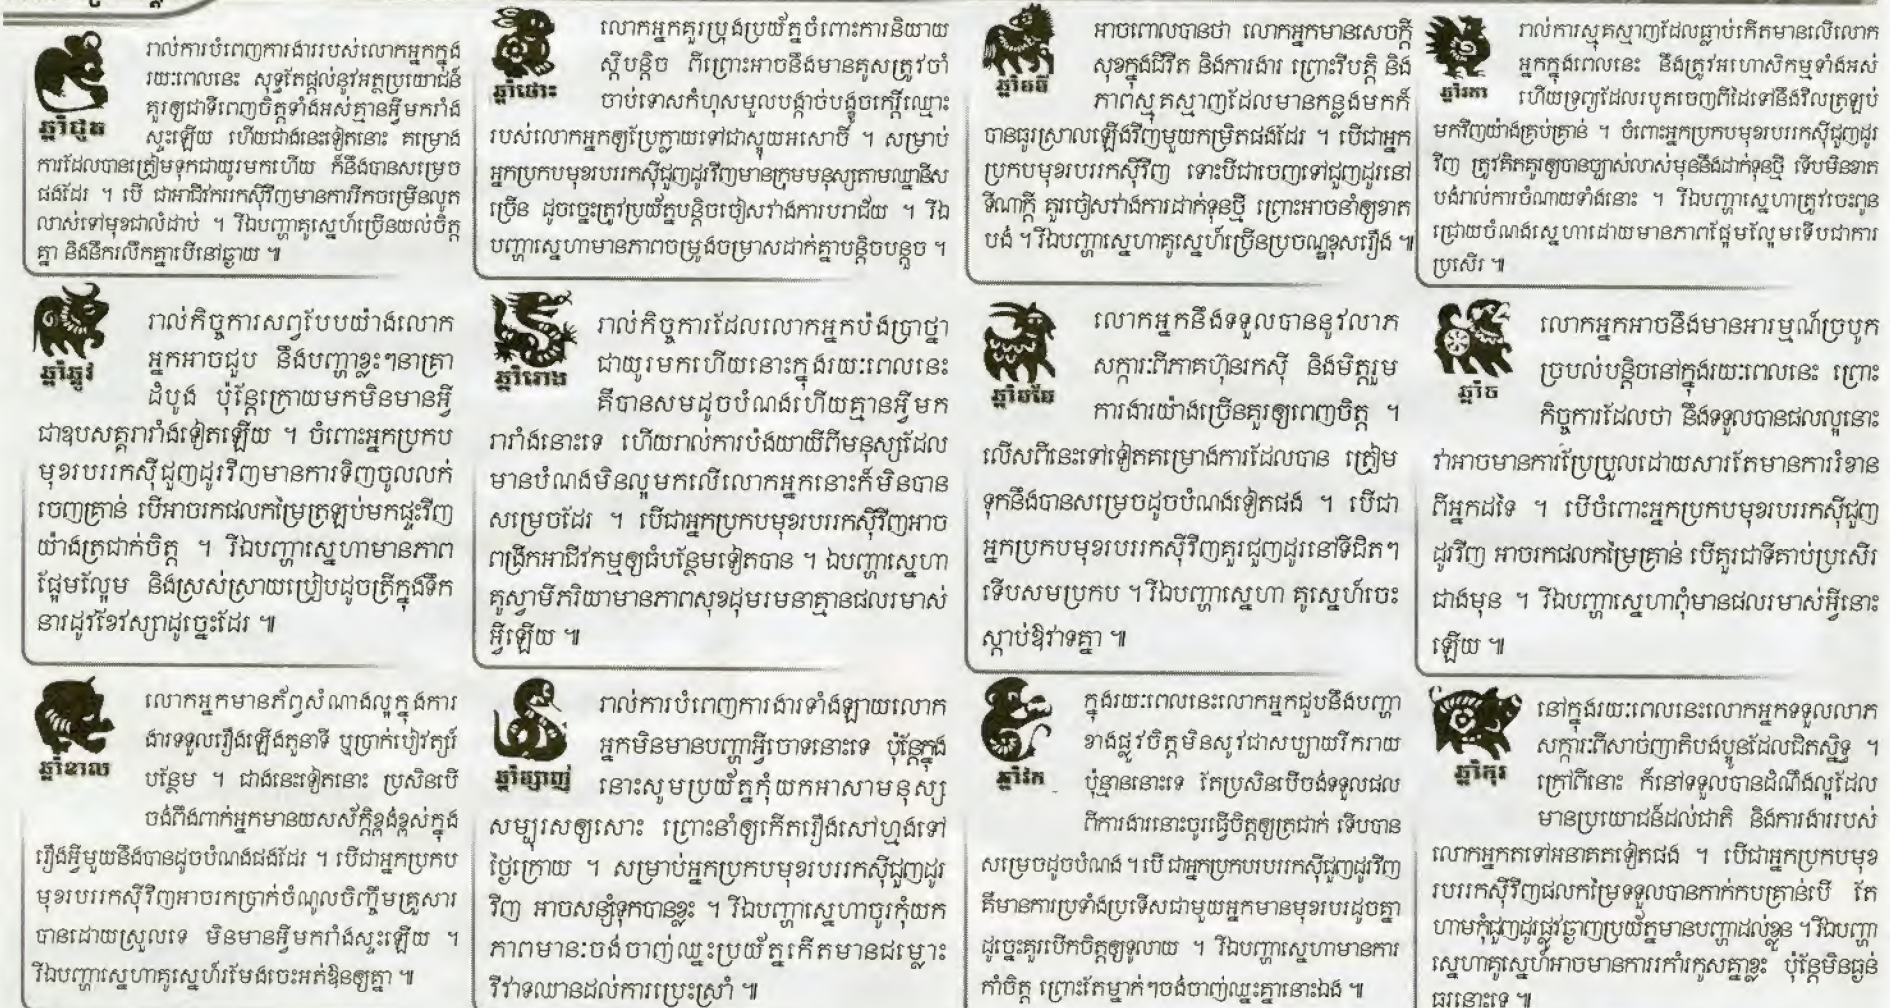 ឆ្នាំជូត
រាល់ការបំពេញការងាររបស់លោកអ្នកក្នុង
រយៈពេលនេះ សុទ្ធតែផ្តល់នូវអត្ថប្រយោជន៍
គួរឲ្យជាទីពេញចិត្តទាំងអស់គ្មានអ្វីមករាំង
ស្ទះឡើយ ហើយជាងនេះទៀតនោះ គម្រោង
ការដែលបានត្រៀមទុកជាយូរមកហើយ ក៏នឹងបានសម្រេច
ផងដែរ ។ បើ ជាអាជីវករររកស៊ីវិញមានការរីកចម្រើនលូត
លាស់ទៅមុខជាលំដាប់ ។ រីឯបញ្ហាគូស្នេហ៍ច្រើនយល់ចិត្ត
គ្នា និងនឹករលឹកគ្នាបើនៅឆ្ងាយ ៕
ឆ្នាំឆ្លូវ
រាល់កិច្ចការសព្វបែបយ៉ាងលោក
អ្នកអាចជួប នឹងបញ្ហាខ្លះៗនាគ្រា
ដំបូង ប៉ុន្តែក្រោយមកមិនមានអ្វី
ជាឧបសគ្គរារាំងទៀតឡើយ ។ ចំពោះអ្នកប្រកប
មុខរបររកស៊ីជួញដូរវិញមានការទិញចូលលក់
ចេញគ្រាន់ បើអាចរកផលកម្រៃត្រឡប់មកផ្ទះវិញ
យ៉ាងត្រជាក់ចិត្ត ។ រីឯបញ្ហាស្នេហាមានភាព
ផ្អែមល្ហែម និងស្រស់ស្រាយប្រៀបដូចត្រីក្នុងទឹក
នារដូវខែវស្សាដូច្នេះដែរ ៕
ឆ្នាំខាល
លោកអ្នកមានភ័ព្វសំណាងល្អក្នុងការ
ងារទទួលរឿងឡើងតួនាទី ឬប្រាក់បៀវត្សរ៍
បន្ថែម ។ ជាងនេះទៀតនោះ ប្រសិនបើ
ចង់ពឹងពាក់អ្នកមានយសស័ក្តិខ្ពង់ខ្ពស់ក្នុង
រឿងអ្វីមួយនឹងបានដូចបំណងផងដែរ ។ បើជាអ្នកប្រកប
មុខរបររកស៊ីវិញអាចរកប្រាក់ចំណូលចិញ្ចឹមគ្រួសារ
បានដោយស្រួលទេ មិនមានអ្វីមករាំងស្ទះឡើយ ។
រីឯបញ្ហាស្នេហាគូស្នេហ៍រមែងចេះអត់ឱនឲ្យគ្នា ៕
ឆ្នាំថោះ
លោកអ្នកគួរប្រុងប្រយ័ត្នចំពោះការនិយាយ
ស្តីបន្តិច ពីព្រោះអាចនឹងមានគូសត្រូវចាំ
ចាប់ទោសកំហុសមួលបង្កាច់បង្ខូចកេរ្តិ៍ឈ្មោះ
របស់លោកអ្នកឲ្យប្រែក្លាយទៅជាស្អុយអសោចិ៍ ។ សម្រាប់
អ្នកប្រកបមុខរបររកស៊ីជួញដូរវិញមានក្រុមមនុស្សតាមឈ្នានីស
ច្រើន ដូចច្នេះត្រូវប្រយ័ត្នបន្តិចចៀសវាងការបរាជ័យ ។ រីឯ
បញ្ហាស្នេហាមានភាពចម្រូងចម្រាសដាក់គ្នាបន្តិចបន្តួច ។
ឆ្នាំរោង
រាល់កិច្ចការដែលលោកអ្នកប៉ងប្រាថ្នា
ជាយូរមកហើយនោះក្នុងរយៈពេលនេះ
គឺបានសមដូចបំណងហើយគ្មានអ្វីមក
រារាំងនោះទេ ហើយរាល់ការប៉ងយាយីពីមនុស្សដែល
មានបំណងមិនល្អមកលើលោកអ្នកនោះក៏មិនបាន
សម្រេចដែរ ។ បើជាអ្នកប្រកបមុខរបររកស៊ីវិញអាច
ពង្រីកអាជីវកម្មឲ្យធំបន្ថែមទៀតបាន ។ ឯបញ្ហាស្នេហា
គូស្វាមីភរិយាមានភាពសុខដុមរមនាគ្មានផលរមាស់
អ្វីឡើយ ៕
ឆ្នាំម្សាញ់
រាល់ការបំពេញការងារទាំងឡាយលោក
អ្នកមិនមានបញ្ហាអ្វីចោទនោះទេ ប៉ុន្តែក្នុង
នោះសូមប្រយ័ត្នកុំយកអាសាមនុស្ស
សម្បុរសឲ្យសោះ ព្រោះនាំឲ្យកើតរឿងសៅហ្មងទៅ
ថ្ងៃក្រោយ ។ សម្រាប់អ្នកប្រកបមុខរបររកស៊ីជួញដូរ
វិញ អាចសន្សំទុកបានខ្លះ ។ រីឯបញ្ហាស្នេហាចូរកុំយក
ភាពមានះចង់ចាញ់ឈ្នះប្រយ័ត្នកើតមានជម្លោះ
វិវាទឈានដល់ការប្រេះស្រាំ ៕
ឆ្នាំមមី
អាចពោលបានថា លោកអ្នកមានសេចក្តី
សុខក្នុងជីវិត និងការងារ ព្រោះវិបត្តិ និង
ភាពស្មុគស្មាញដែលមានកន្លងមកក៏
បានធូរស្រាលឡើងវិញមួយកម្រិតផងដែរ ។ បើជាអ្នក
ប្រកបមុខរបររកស៊ីវិញ ទោះបីជាចេញទៅជួញដូរនៅ
ទីណាក្តី គួរចៀសវាងការដាក់ទុនថ្មី ព្រោះអាចនាំឲ្យខាត
បង់ ។ រីឯបញ្ហាស្នេហាគូស្នេហ៍ច្រើនប្រចណ្ឌខុសរឿង ៕
ឆ្នាំមមែ
លោកអ្នកនឹងទទួលបាននូវលាភ
សក្ការៈពីភាគហ៊ុនរកស៊ី និងមិត្តរួម
ការងារយ៉ាងច្រើនគួរឲ្យពេញចិត្ត ។
លើសពីនេះទៅទៀតគម្រោងការដែលបាន ត្រៀម
ទុកនឹងបានសម្រេចដូចបំណងទៀតផង ។ បើជា
អ្នកប្រកបមុខរបររកស៊ីវិញគួរជួញដូរនៅទីជិតៗ
ទើបសមប្រកប ។ រីឯបញ្ហាស្នេហា គូស្នេហ៍ចេះ
ស្តាប់ឱវាទគ្នា ៕
ឆ្នាំវក
ក្នុងរយៈពេលនេះលោកអ្នកជួបនឹងបញ្ហា
ខាងផ្លូវចិត្តមិនសូវជាសប្បាយរីករាយ
ប៉ុន្មាននោះទេ តែប្រសិនបើចង់ទទួលផល
ពីការងារនោះចូរធ្វើចិត្តឲ្យត្រជាក់ ទើបបាន
សម្រេចដូចបំណង ។ បើ ជាអ្នកប្រកបរបររកស៊ីជួញដូរវិញ
គឺមានការប្រទាំងប្រទើសជាមួយអ្នកមានមុខរបរដូចគ្នា
ដូច្នេះគួរបើកចិត្តឲ្យទូលាយ ។ រីឯបញ្ហាស្នេហាមានការ
កាំចិត្ត ព្រោះតែម្នាក់ៗចង់ចាញ់ឈ្នះគ្នានោះឯង ៕
ឆ្នាំរកា
រាល់ការស្មុគស្មាញដែលធ្លាប់កើតមានលើលោក
អ្នកក្នុងពេលនេះ នឹងត្រូវអហោសិកម្មទាំងអស់
ហើយទ្រព្យដែលរបូតចេញពីដៃទៅនឹងវិលត្រឡប់
មកវិញយ៉ាងគ្រប់គ្រាន់ ។ ចំពោះអ្នកប្រកបមុខរបររកស៊ីជួញដូរ
វិញ ត្រូវគិតគូរឲ្យបានច្បាស់លាស់មុននឹងដាក់ទុនថ្មី ទើបមិនខាត
បង់រាល់ការចំណាយទាំងនោះ ។ រីឯបញ្ហាស្នេហាត្រូវចេះពូន
ជ្រោយចំណងស្នេហាដោយមានភាពផ្អែមល្ហែមទើបជាការ
ប្រសើរ ៕
ឆ្នាំច
លោកអ្នកអាចនឹងមានអារម្មណ៍ច្របូក
ច្របល់បន្តិចនៅក្នុងរយៈពេលនេះ ព្រោះ
កិច្ចការដែលថា នឹងទទួលបានផលល្អនោះ
វាអាចមានការប្រែប្រួលដោយសារតែមានការរំខាន
ពីអ្នកដទៃ ។ បើចំពោះអ្នកប្រកបមុខរបររកស៊ីជួញ
ដូរវិញ អាចរកផលកម្រៃគ្រាន់ បើគួរជាទីគាប់ប្រសើរ
ជាងមុន ។ រីឯបញ្ហាស្នេហាពុំមានផលរមាស់អ្វីនោះ
ឡើយ ៕
ឆ្នាំកុរ
នៅក្នុងរយៈពេលនេះលោកអ្នកទទួលលាភ
សក្ការៈពីសាច់ញាតិបងប្អូនដែលជិតស្និទ្ធ ។
ក្រៅពីនោះ ក៏នៅទទួលបានដំណឹងល្អដែល
មានប្រយោជន៍ដល់ជាតិ និងការងាររបស់
លោកអ្នកតទៅអនាគតទៀតផង ។ បើជាអ្នកប្រកបមុខ
របររកស៊ីវិញផលកម្រៃទទួលបានកាក់កបគ្រាន់បើ តែ
ហាមកុំជួញដូរផ្លូវឆ្ងាញប្រយ័ត្នមានបញ្ហាដល់ខ្លួន ។ រីឯបញ្ហា
ស្នេហាគូស្នេហ៍អាចមានការរកាំរកូសគ្នាខ្លះ ប៉ុន្តែមិនធ្ងន់
ធ្ងរនោះទេ ៕